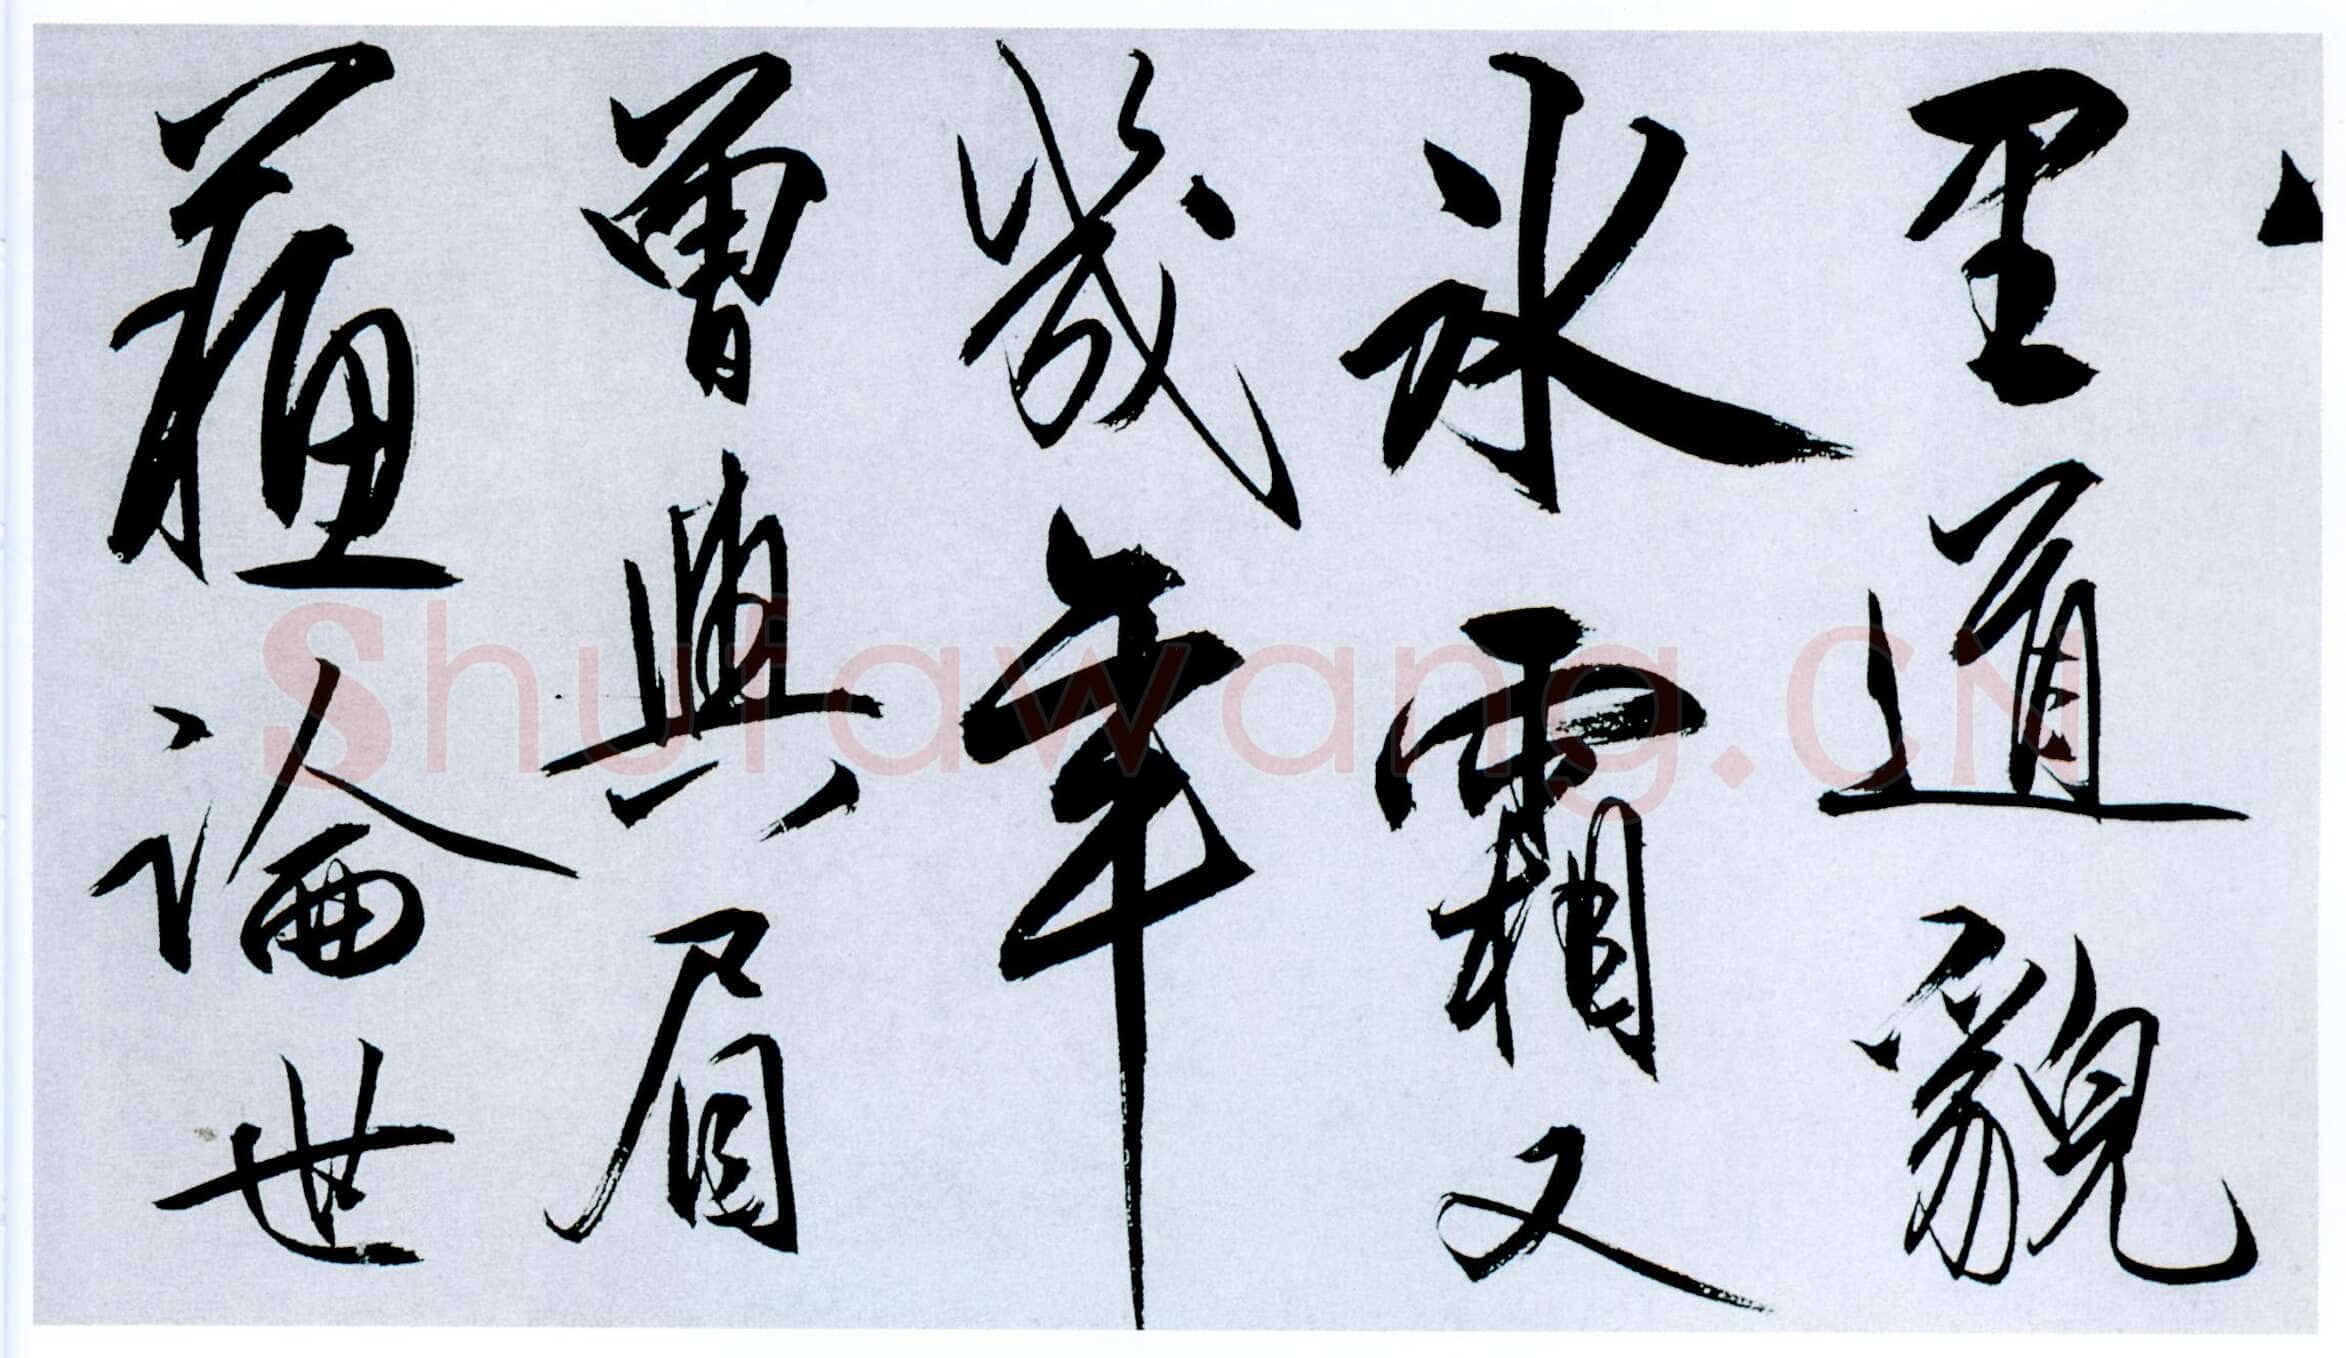 里道貌
氷霜又
幾年
曾與眉
蘓論世
Shufawang.CN